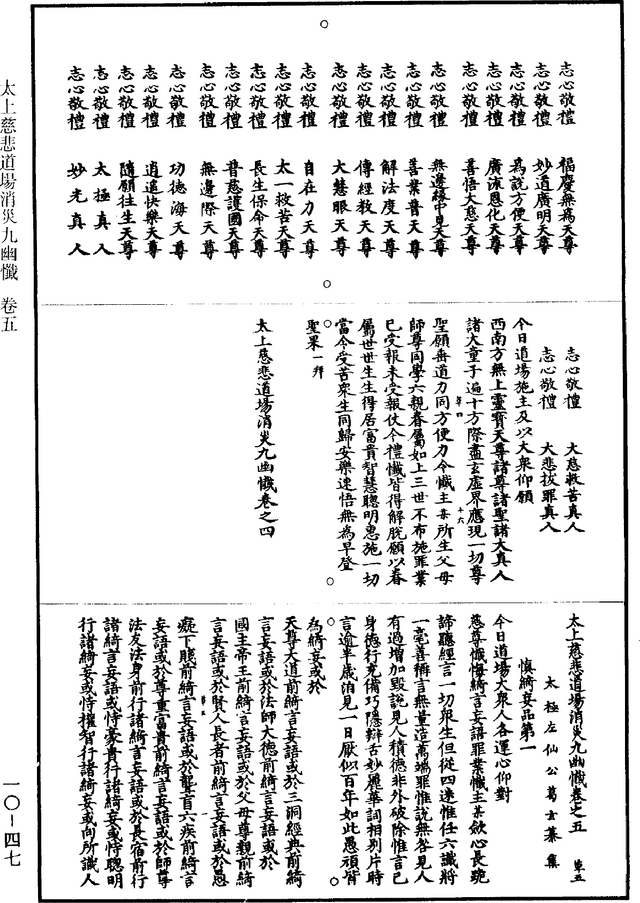 太上慈悲道場消災九幽懺　卷五
一〇－四七
志心敬禮　福慶無為天尊
志心敬禮　妙道廣明天尊
志心敬禮　為說方便天尊
志心敬禮　廣流恩化天尊
志心敬禮　善悟大慈天尊
志心敬禮　無邊緣中見天尊
志心敬禮　善業普天尊
志心敬禮　解法度天尊
志心敬禮　傳經教天尊
志心敬禮　大慧眼天尊
志心敬禮　自在力天尊
志心敬禮　太一救苦天尊
志心敬禮　長生保命天尊
志心敬禮　普慈護國天尊
志心敬禮　無邊際天尊
志心敬禮　功德海天尊
志心敬禮　逍遙快樂天尊
志心敬禮　隨願往生天尊
志心敬禮　太極真人
志心敬禮　妙光真人
志心敬禮　大慈救苦真人
志心敬禮　大悲拔罪真人
今日道場施主及以大衆仰願
西南方無上靈寶天尊諸尊諸聖諸大真人
諸大童子遍十方際盡玄虛界應現一切尊
聖願垂道力同方便力令懺主某所生父母
師尊同學六親眷屬如上三世不布施罪業
已受報未受報仗今禮懺皆得解脫願以眷
屬世世生生得居富貴智慧聰明惠施一切
當今受苦衆生同歸安樂速悟無為早登
聖果一拜
太上慈悲道場消災九幽懺卷之四
太上慈悲道場消災九幽懺卷之五　草五
太極左仙公葛玄纂集
慎綺妄品第一
今日道場大衆人各運心仰對
慈尊懺悔綺言妄語罪業懺主某歛心長跪
諦聽經言一切衆生但從四迷惟任六識將
一毫善稱言無量造萬端罪惟說無咎見人
有過增加毀說見人積德非外破除惟言己
身德行充備巧隱辯舌妙麗華詞相別片時
言逾半歲消見一日厭似百年如此愚頑皆
為綺妄或於
天尊大道前綺言妄語或於三洞經典前綺
言妄語或於法師大德前綺言妄語或於
國主帝王前綺言妄語或於父母尊親前綺
言妄語或於賢人長者前綺言妄語或於愚
癡下賤前綺言妄語或於聾盲六疾前綺言
妄語或於尊重富貴前綺言妄語或於師尊
法友法身前行諸綺言妄語或於長宿前行
諸綺言妄語或恃豪貴行諸綺妄或恃聰明
行諸綺妄或恃權智行諸綺妄或向所識人